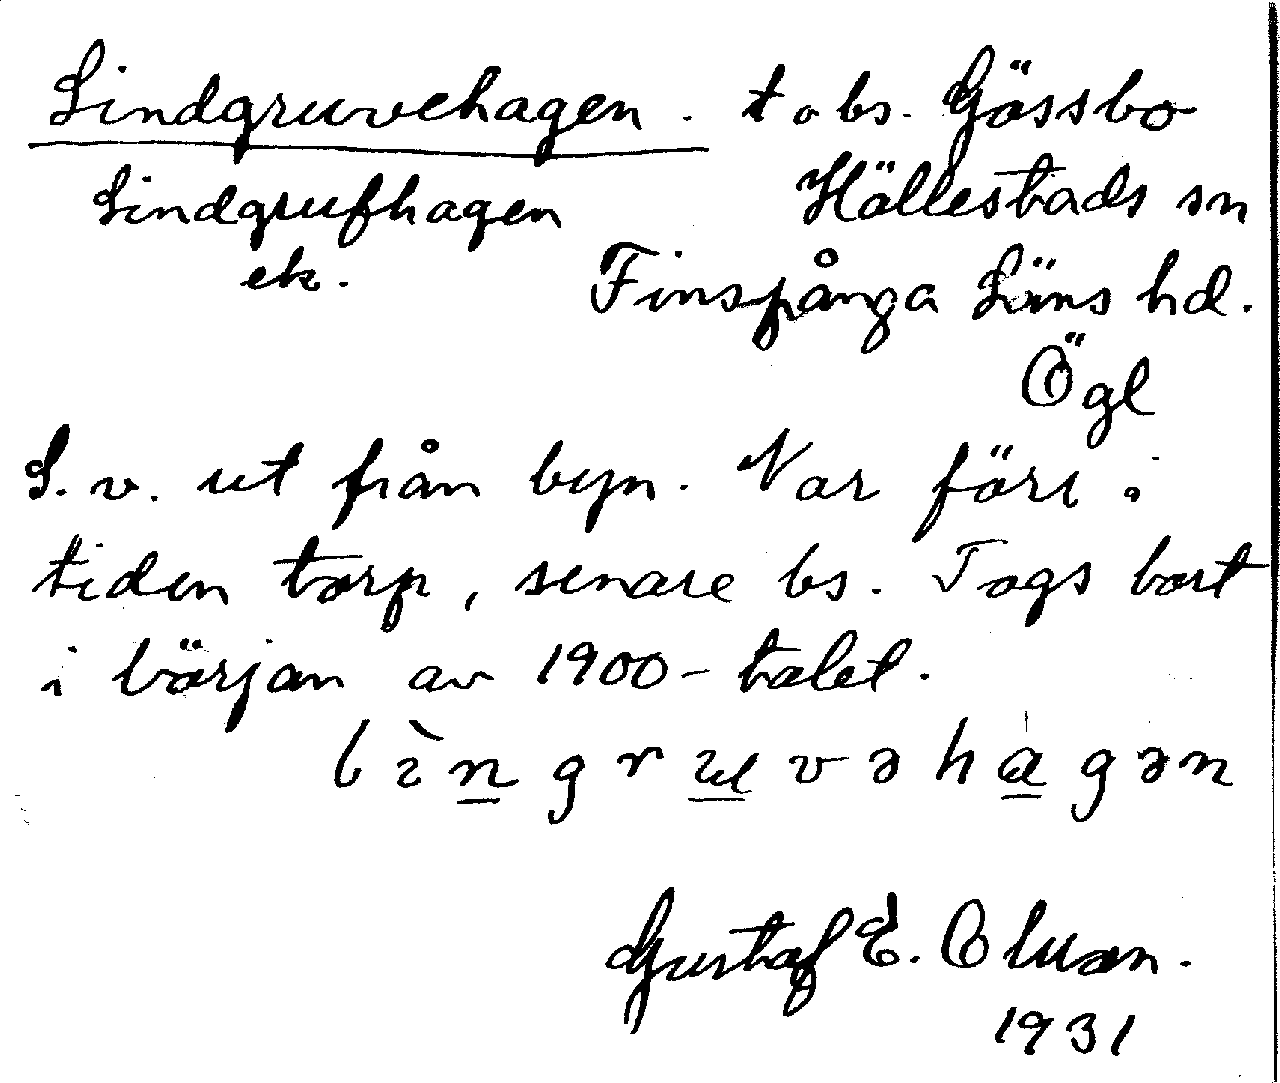 Lindgruvehagen. t o bs. Gössbo
Lindgrufhagen Hällestads sn
ek. Finspånga Läns hd.
Ögl
S. v. ut från byn. Var förr i
tiden torp, senare bs. Togs bort
i början av 1900-talet.
lìngruvəhagən
Gustaf E. Olsson.
1931